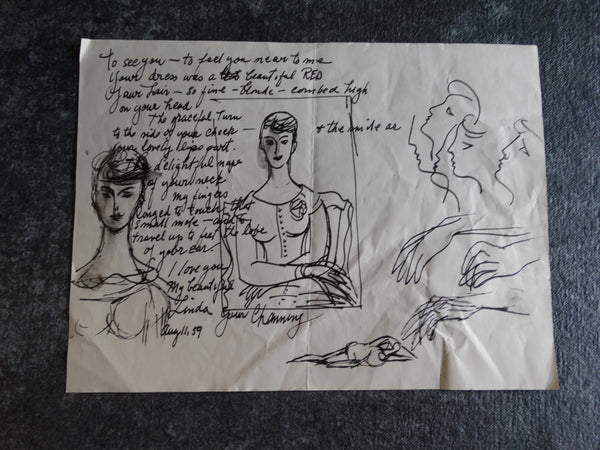 To see you — to feel you near to me
Your dress was a beautiful RED
Your hair — so fine — blonde — combed high
on your head
The graceful turn
to the side of your cheek — & the as
your lovely lips part.
The delightful nape
of your neck
My fingers
longed to touch that
small mole — and to
travel up to feel the lobe
of your ear.
I love you
My beautiful
Linda your Channing
Aug 11, 59